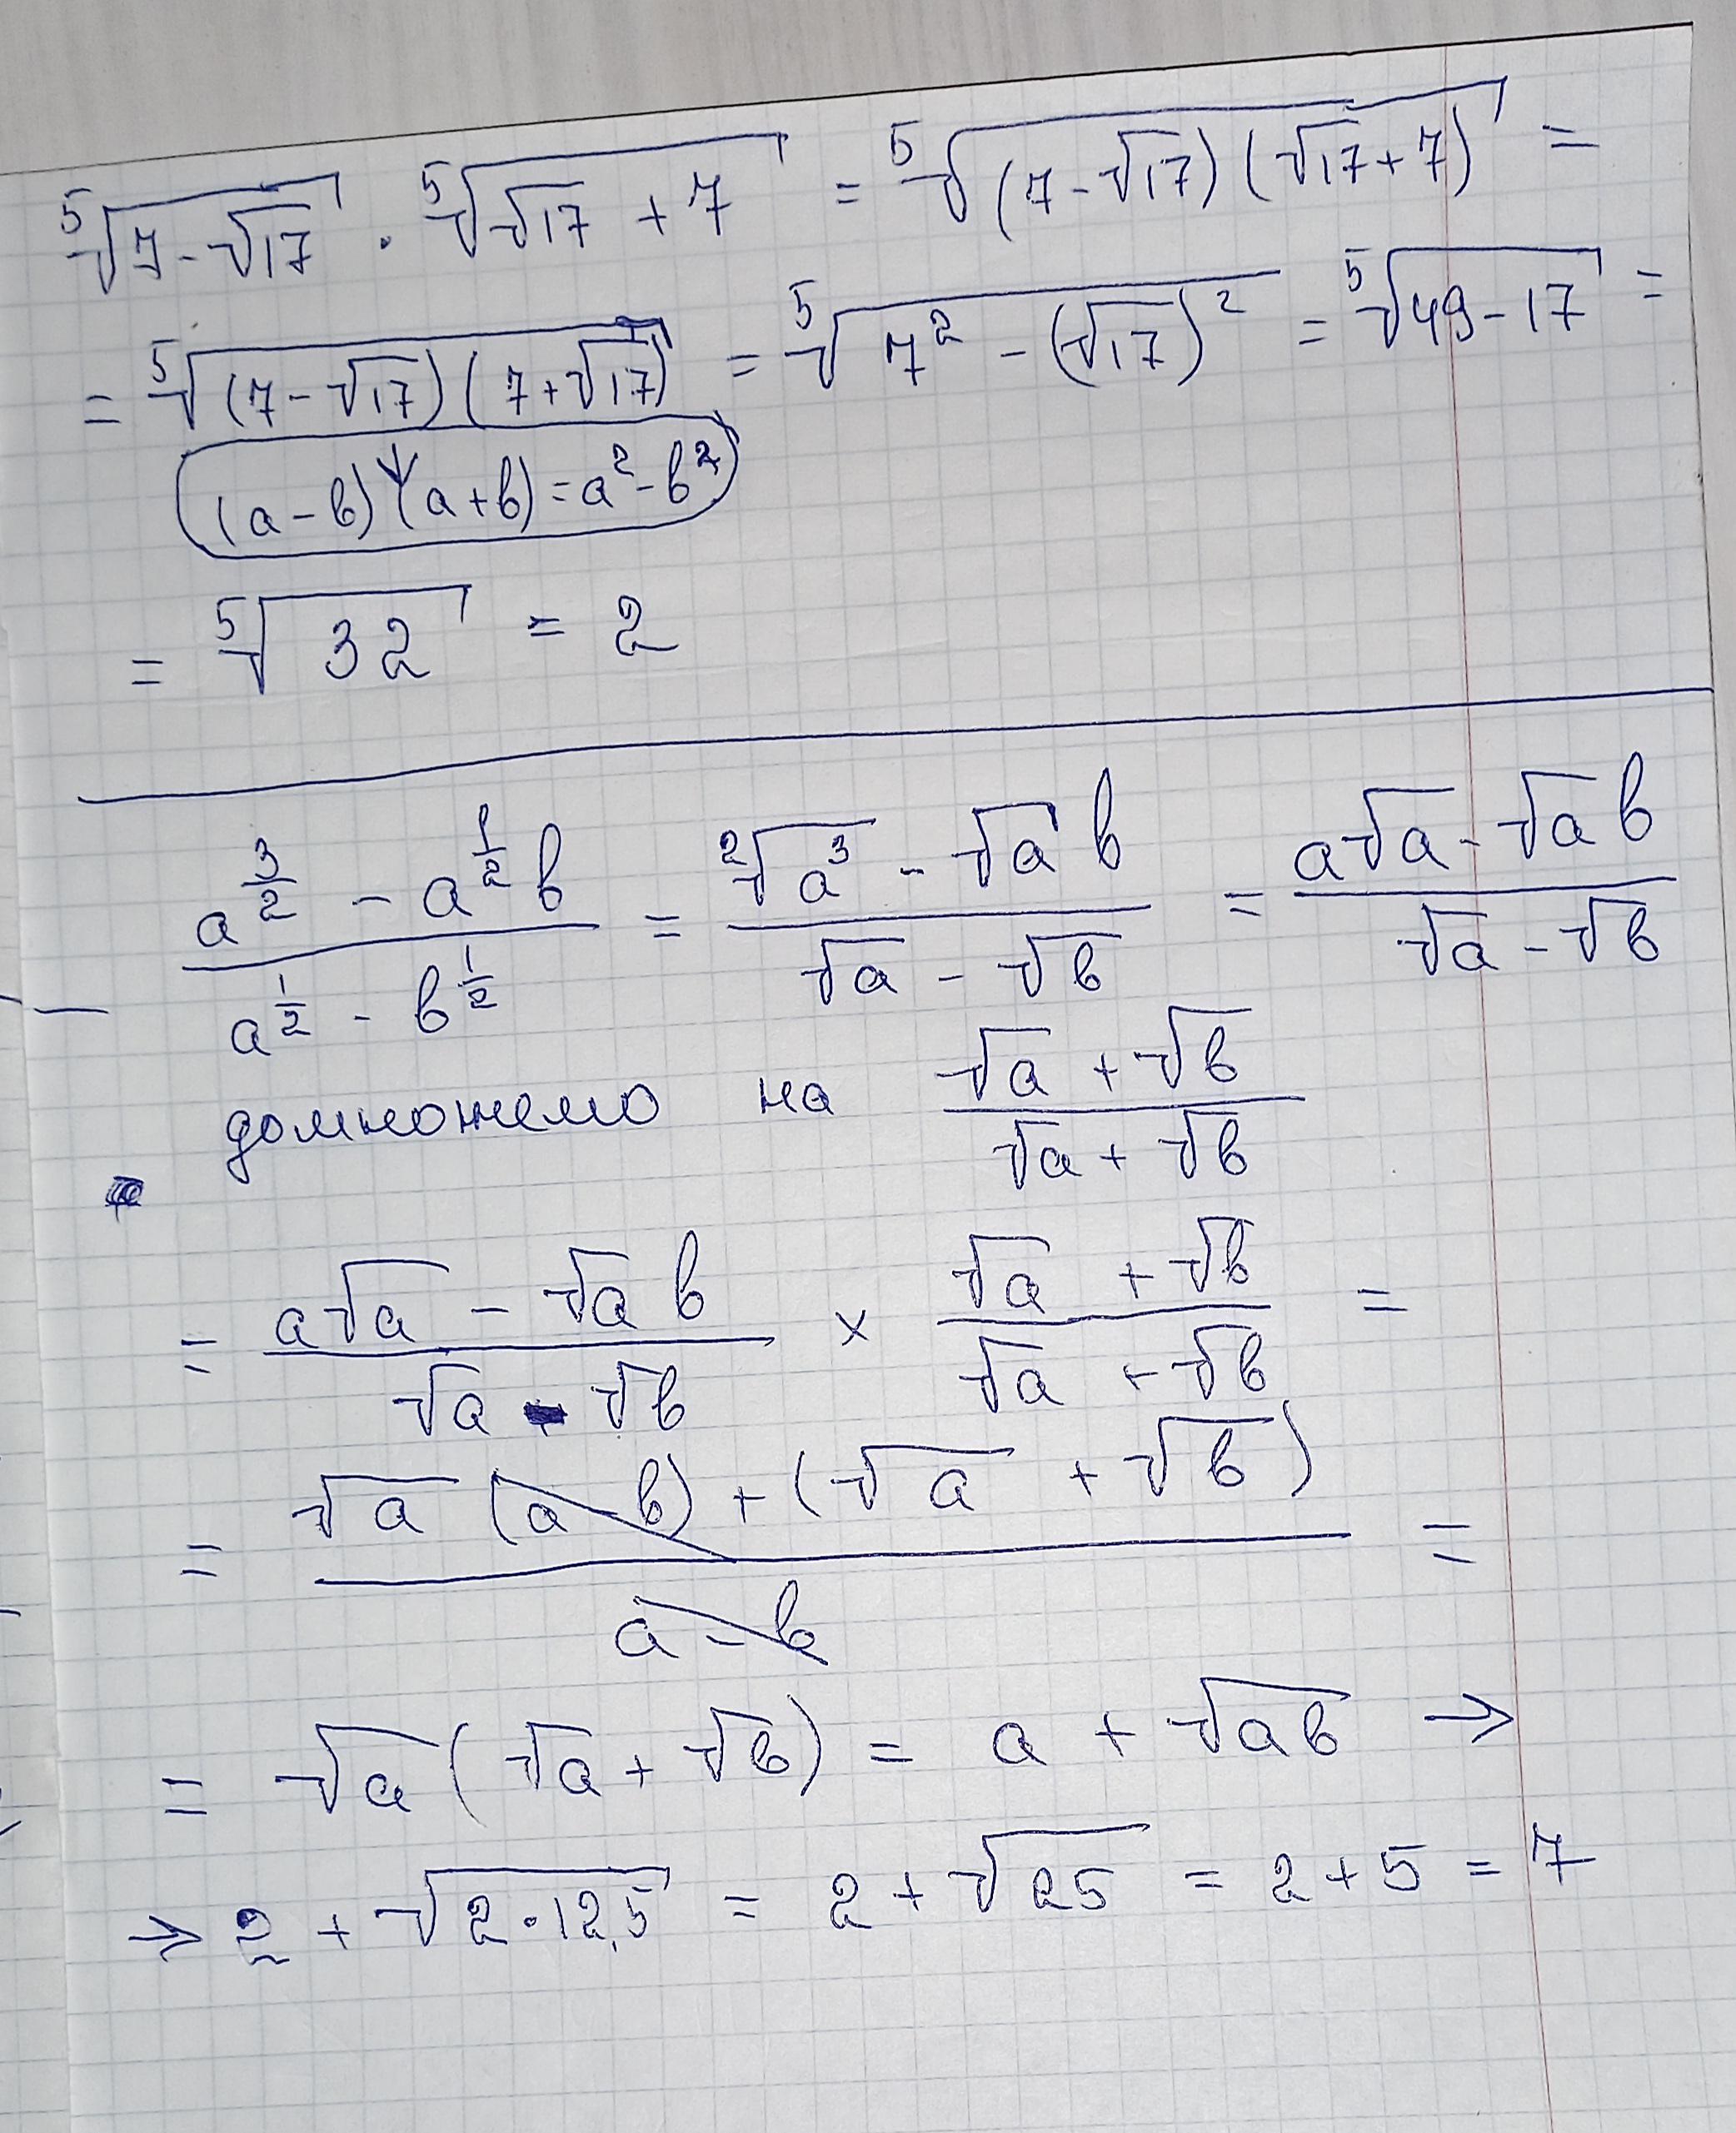 ⁵√(7-√17) · ⁵√(√17 + 7) = ⁵√((7-√17)(√17+7)) =
= ⁵√((7-√17)(7+√17)) = ⁵√(7² - (√17)²) = ⁵√(49-17) =
(a-b)(a+b)=a²-b²
= ⁵√32 = 2
(a^(3/2) - a^(1/2) b)/(a^(1/2) - b^(1/2)) = (²√(a³) - √a b)/(√a - √b) = (a√a - √a b)/(√a - √b)
домножемо на (√a + √b)/(√a + √b)
= (a√a - √a b)/(√a - √b) × (√a + √b)/(√a + √b) =
= (√a (a-b) + (√a + √b))/(a-b) =
= √a (√a + √b) = a + √ab →
→ 2 + √(2·12,5) = 2 + √25 = 2+5 = 7